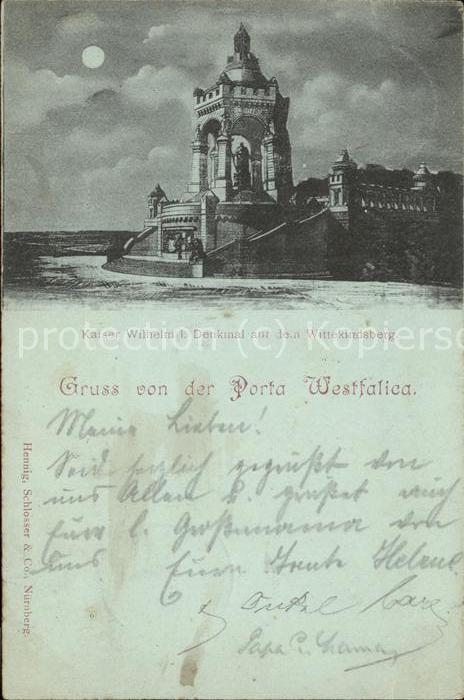 Kaiser Wilhelm I. Denkmal auf dem Wittekindsberg.
protection (c) Kopiersc
Gruss von der Porta Westfalica.
Meine Lieben!
Seid herzlich gegrüßt von
uns Allen u. grüßet auch
Eure l. Großmama von
uns Eure Tante Helene
Onkel
Papa u. Mama
Hennig, Schlosser & Co., Nürnberg.